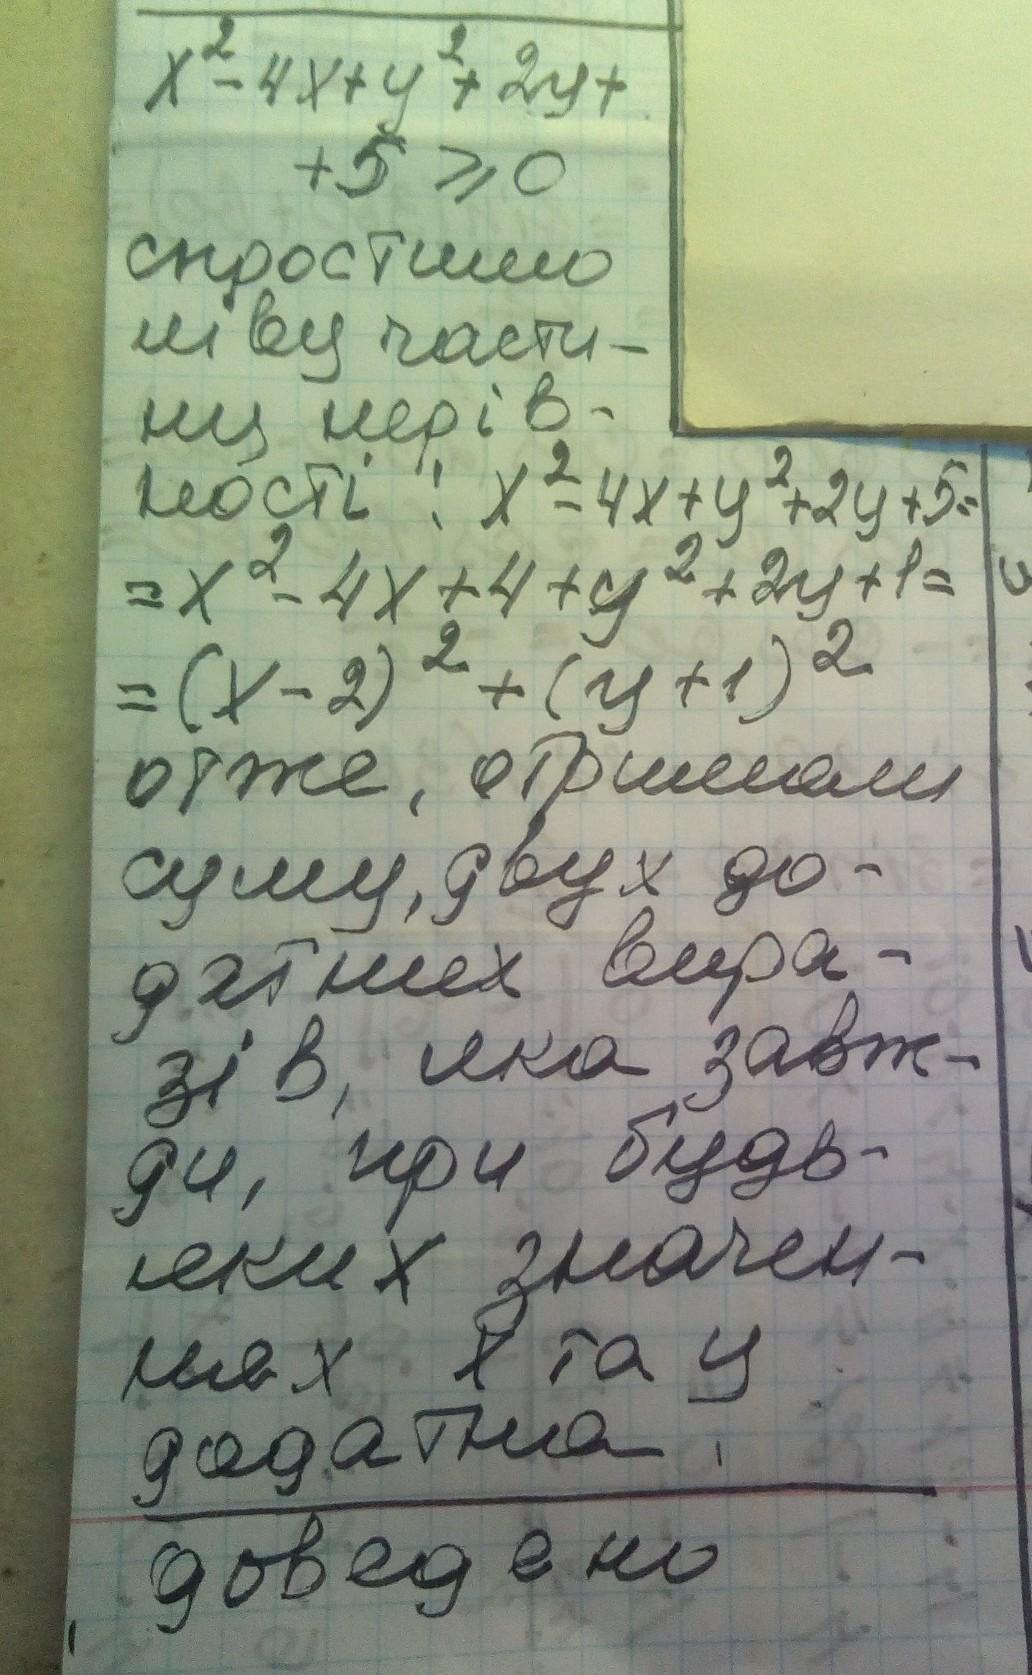 x²-4x+y²+2y+
+5⩾0
спростимо
ліву части-
ну нерів-
ності: x²-4x+y²+2y+5=
=x²-4x+4+y²+2y+1=
=(x-2)²+(y+1)²
отже, отримали
суму, двух до-
датних вира-
зів, яка завж-
ди, при будь-
яких значен-
нях x та y
додатна.
доведено